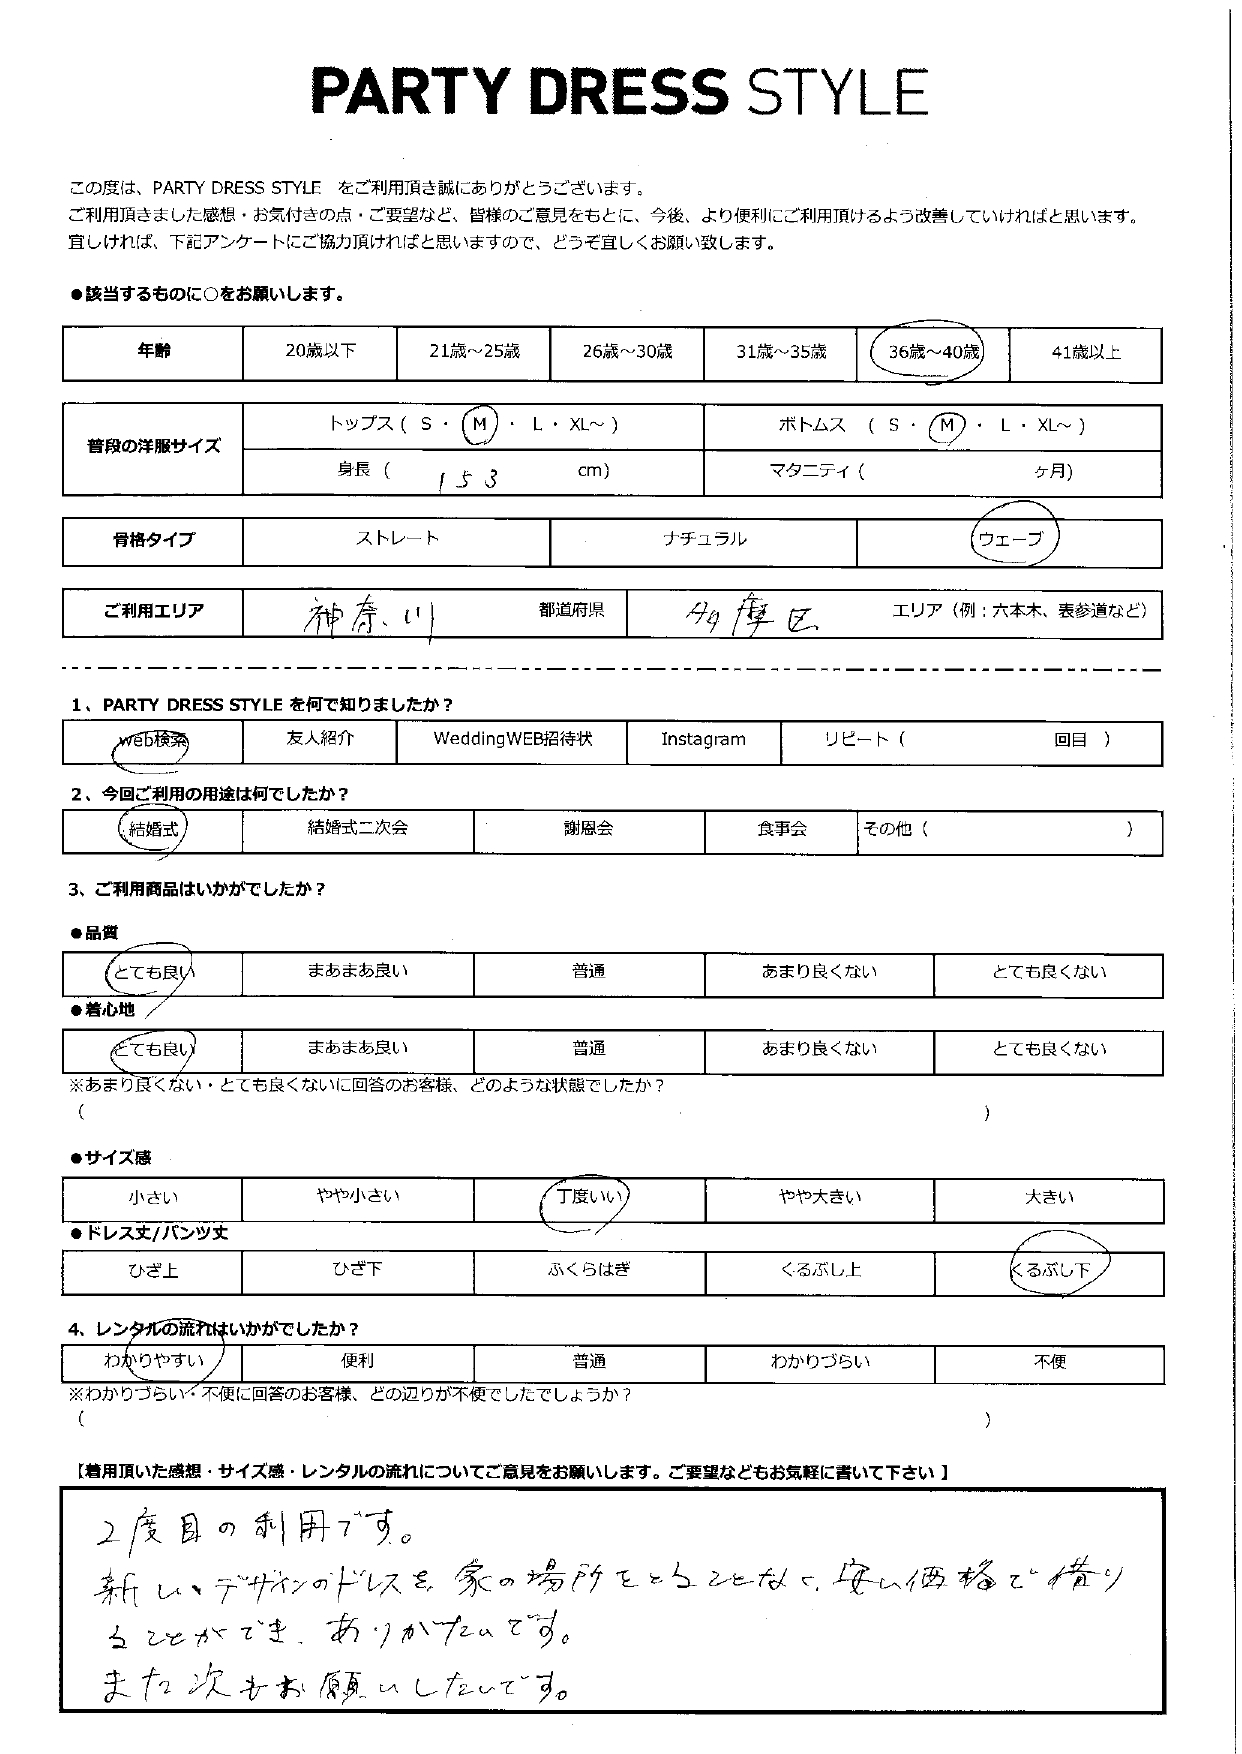 PARTY DRESS STYLE
この度は、PARTY DRESS STYLE をご利用頂き誠にありがとうございます。
ご利用頂きました感想・お気付きの点・ご要望など、皆様のご意見をもとに、今後、より便利にご利用頂けるよう改善していければと思います。
宜しければ、下記アンケートにご協力頂ければと思いますので、どうぞ宜しくお願い致します。
●該当するものに○をお願いします。
年齢 20歳以下 21歳～25歳 26歳～30歳 31歳～35歳 36歳～40歳 41歳以上
普段の洋服サイズ
トップス ( S ・ M ・ L ・ XL～ ) ボトムス ( S ・ M ・ L ・ XL～ )
身長 ( 153 cm) マタニティ ( ヶ月)
骨格タイプ ストレート ナチュラル ウェーブ
ご利用エリア 神奈川 都道府県 多摩区 エリア（例：六本木、表参道など）
1、PARTY DRESS STYLE を何で知りましたか？
web検索 友人紹介 WeddingWEB招待状 Instagram リピート ( 回目 )
2、今回ご利用の用途は何でしたか？
結婚式 結婚式二次会 謝恩会 食事会 その他 ( )
3、ご利用商品はいかがでしたか？
●品質
とても良い まあまあ良い 普通 あまり良くない とても良くない
●着心地
とても良い まあまあ良い 普通 あまり良くない とても良くない
※あまり良くない・とても良くないに回答のお客様、どのような状態でしたか？
( )
●サイズ感
小さい やや小さい 丁度いい やや大きい 大きい
●ドレス丈/パンツ丈
ひざ上 ひざ下 ふくらはぎ くるぶし上 くるぶし下
4、レンタルの流れはいかがでしたか？
わかりやすい 便利 普通 わかりづらい 不便
※わかりづらい・不便に回答のお客様、どの辺りが不便でしたでしょうか？
( )
【着用頂いた感想・サイズ感・レンタルの流れについてご意見をお願いします。ご要望などもお気軽に書いて下さい 】
2度目の利用です。
新しいデザインのドレスを、家の場所をとることなく、安い価格で借り
ることができ、ありがたいです。
また次もお願いしたいです。